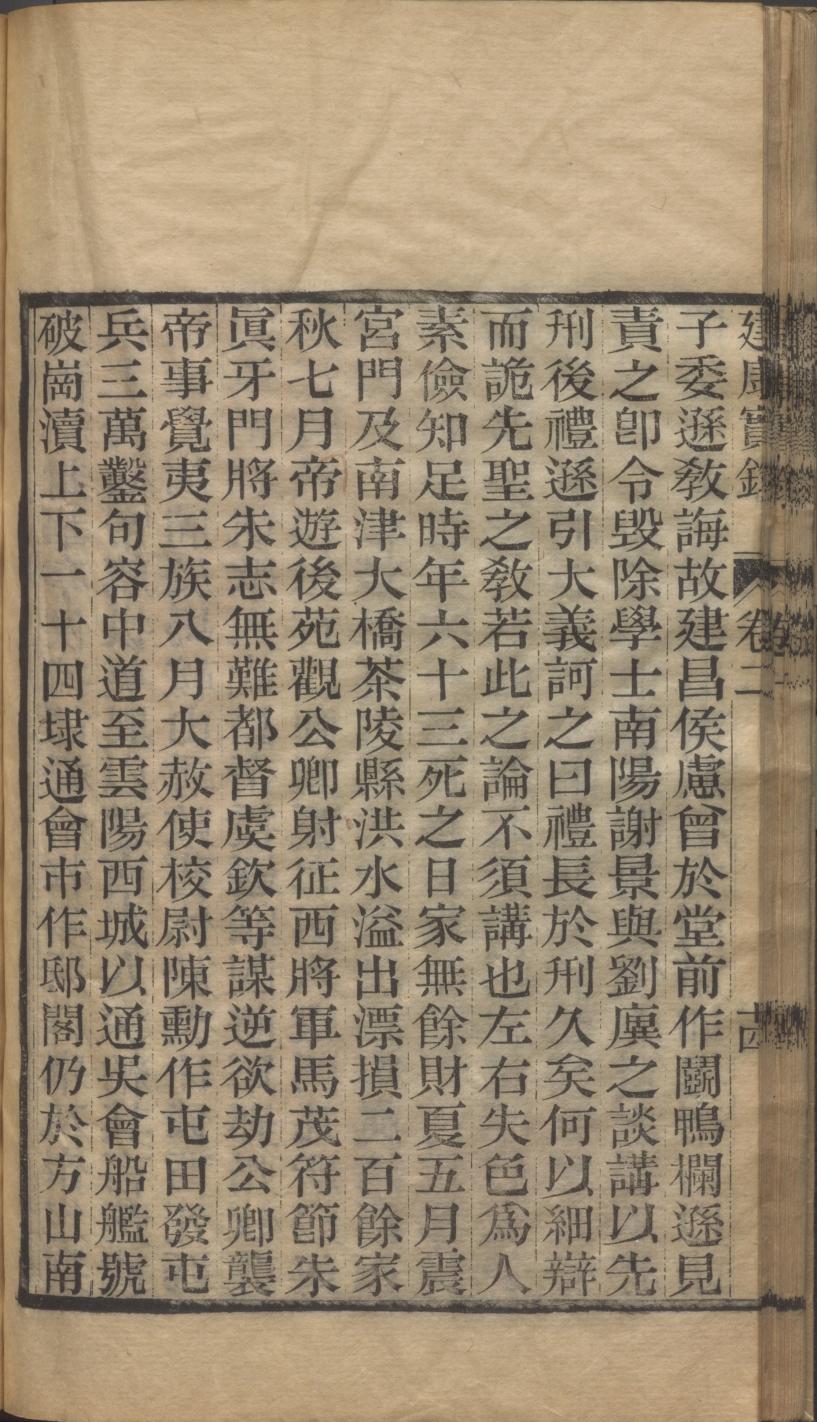 建康實錄 卷二
子委遜教誨故建昌侯慮曾於堂前作鬭鴨欄遜見
責之卽令毁除學士南陽謝景與劉廙之談講以先
刑後禮遜引大義訶之曰禮長於刑久矣何以細辯
而詭先聖之敎若此之論不須講也左右失色爲人
素儉知足時年六十三死之日家無餘財夏五月震
宮門及南津大橋茶陵縣洪水溢出漂損二百餘家
秋七月帝遊後苑觀公卿射征西將軍馬茂符節朱
眞牙門將朱志無難都督虞欽等謀逆欲劫公卿襲
帝事覺夷三族八月大赦使校尉陳勳作屯田發屯
兵三萬鑿句容中道至雲陽西城以通吳會船艦號
破崗瀆上下一十四埭通會市作邸閣仍於方山南